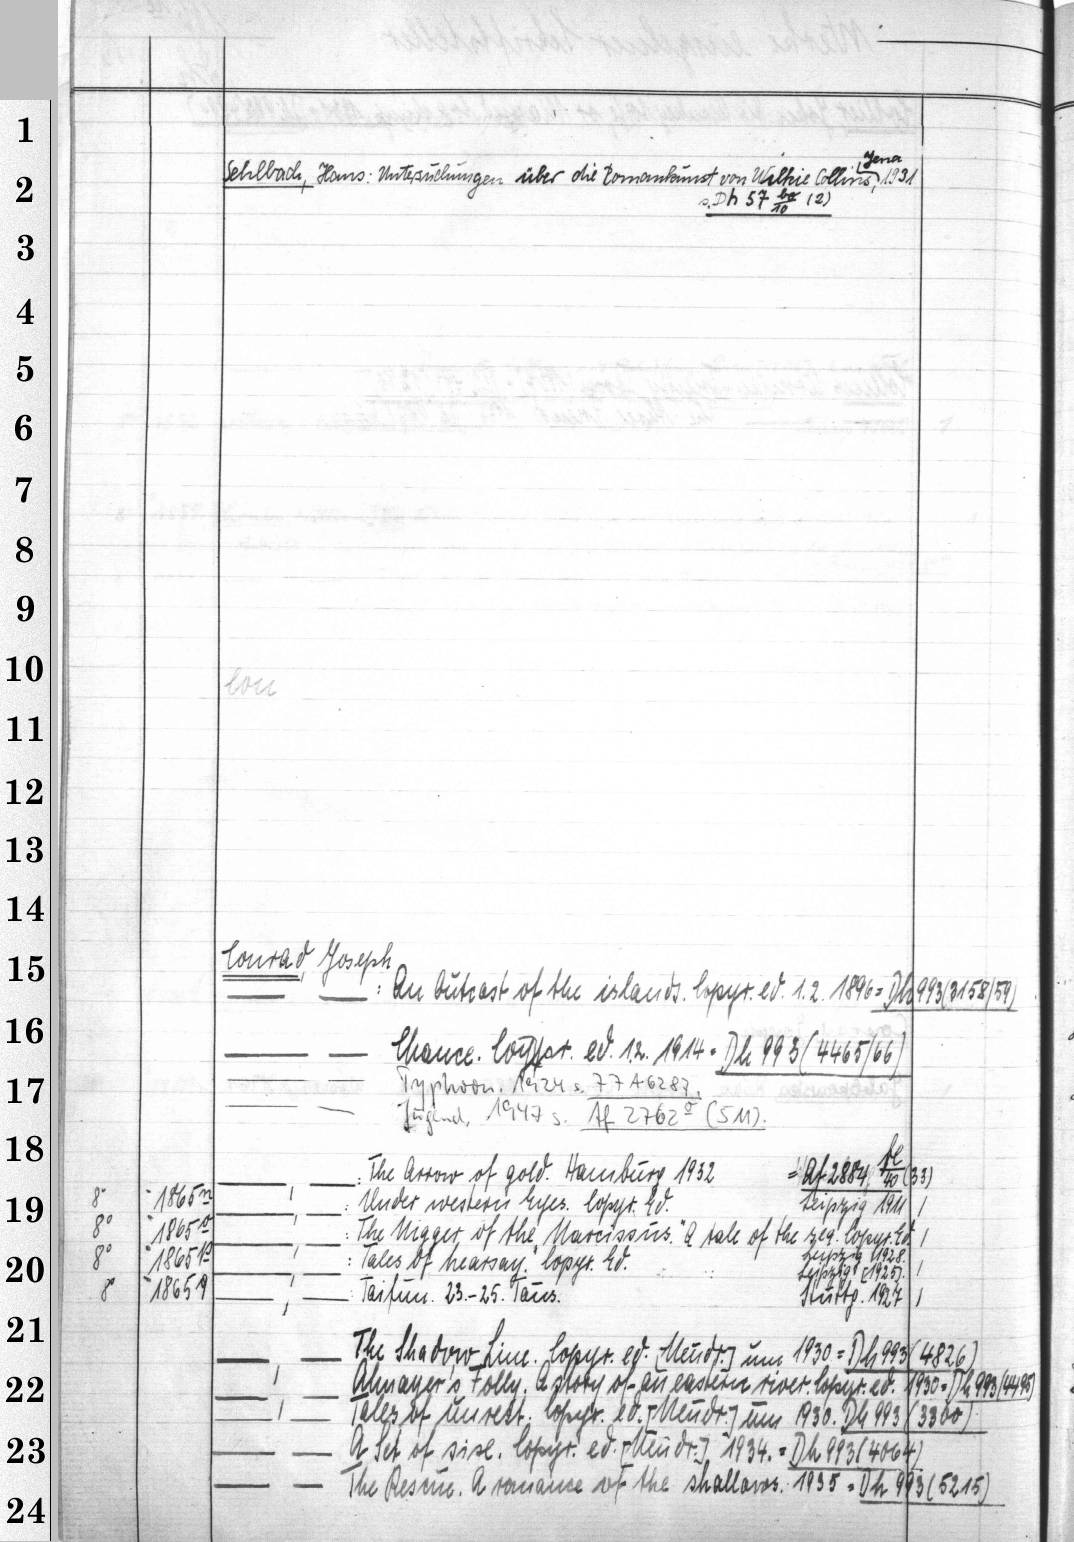 1
2
3
4
5
6
7
8
9
10
11
12
13
14
15
16
17
18
19
20
21
22
23
24
Sehlbach, Hans: Untersuchungen über die Romankunst von Wilkie Collins, Jena 1931
s. Dh 57 (2)
Con
Conrad, Joseph
— — : An Outcast of the islands. Copyr. ed. 1.2. 1896 = Dh 993 (3158/59)
— — Chance. Copyr. ed. 1.2. 1914 = Dh 993 (4465/66)
Typhoon. 1924 s. 77 A 6287.
— — Jugend, 1947 s. Af 2762 (511).
— , — : The Arrow of gold. Hamburg 1932 = Af 2884 (33)
8° 1865 n — , — : Under western Eyes. Copyr. Ed. Leipzig 1911 /
8° 1865 o — , — : The Nigger of the Narcissus. A tale of the sea. Copyr. Ed. Leipzig 1928. /
8° 1865 p — , — : Tales of hearsay. Copyr. Ed. Leipzig (1925). /
8° 1865 q — , — : Taifun. 23.-25. Taus. Stuttg. 1927 /
— , — The Shadow Line. Copyr. ed. [Neudr.] um 1930 = Dh 993 (4826)
— , — Almayer's Folly. A story of an eastern river. Copyr. ed. 1930 = Dh 993 (4495)
— , — Tales of unrest. Copyr. ed. [Neudr.] um 1930. Dh 993 (3300)
— — A Set of six. Copyr. ed. [Neudr.] 1934. = Dh 993 (4064)
— — The Rescue. A romance of the shallows. 1935 = Dh 993 (5215)